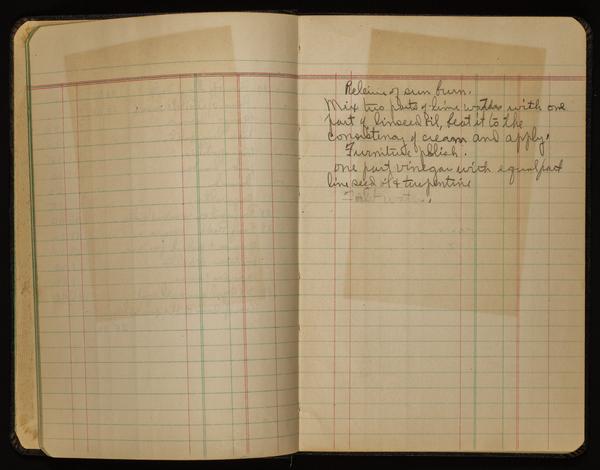 Releiving sun burn.
Mix two parts of lime water with one
part of linseed oil, beat it to the
consistency of cream and apply.
Furniture polish.
one part vinegar with equal part
linseed oil & turpentine